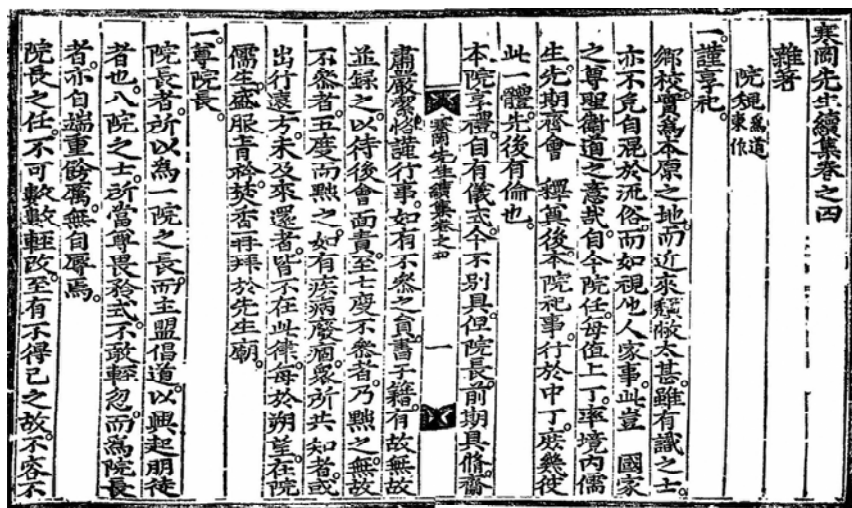 寒岡先生續集卷之四
雜著
院規 爲道東作
一。謹享祀。
鄕校。實爲本原之地。而近來頹敝太甚。雖有識之士。
亦不免自混於流俗。而如視他人家事。此豈 國家
之尊聖衛道之意哉。自今院任。每値上丁。率境內儒
生。先期齊會 釋奠後。本院祀事。行於中丁。庶幾使
此一體。先後有倫也。
本院享禮。自有儀式。今不別具。但院長。前期具脩。齋
寒岡先生續集卷之四 一
肅嚴潔。恪謹行事。如有不參之員。書于籍。有故無故
並錄之。以待後會而責。至七度不參者。乃黜之。無故
不參者。五度而黜之。如有疾病廢痼。衆所共知者。或
出行遠方。未及來還者。皆不在此律。每於朔望。在院
儒生。盛服靑衿。焚香再拜於先生廟。
一。尊院長。
院長者。所以爲一院之長。而主盟倡道。以興起朋徒
者也。入院之士。所當尊畏矜式。不敢輕忽。而爲院長
者。亦自端重飭厲。無自辱焉。
院長之任。不可數數輕改。至有不得已之故。不容不